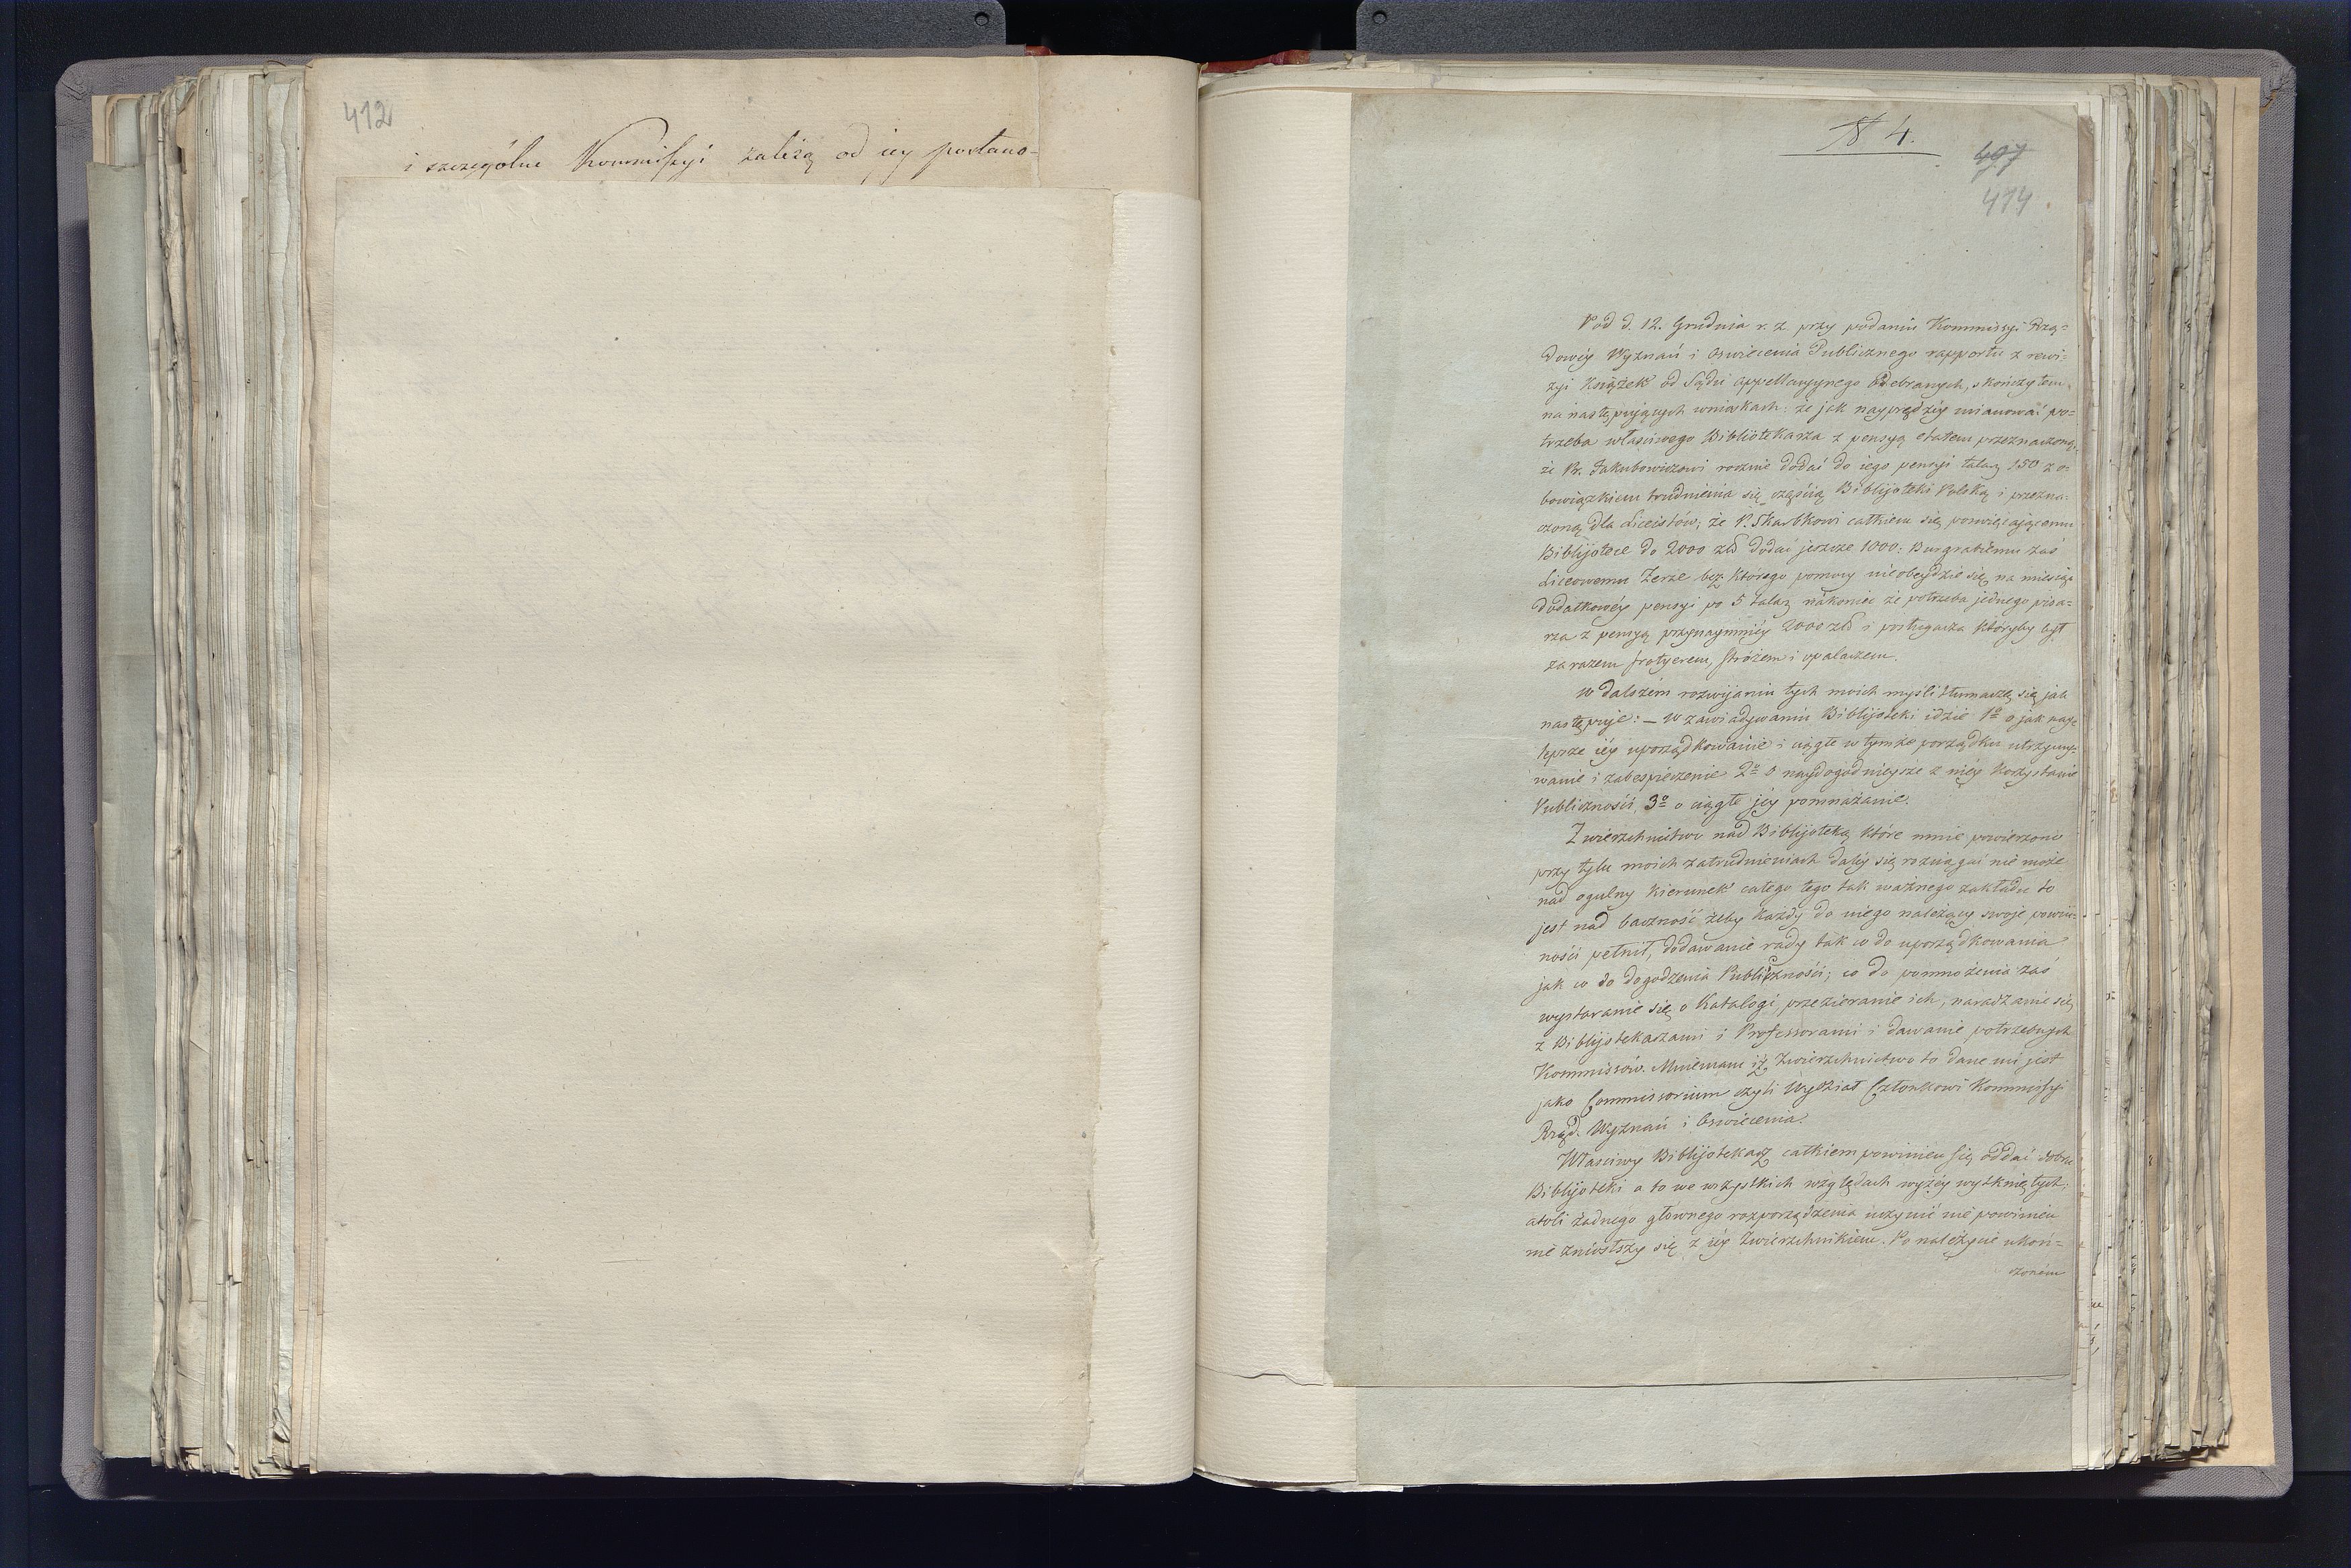 412
i szczególne Kommissyi zależą od iey postano-
N 4.
497
414
Pod d. 12. Grudnia r. z. przy podaniu Kommissyi Rzą-
dowéy Wyznań i Oswiecenia Publicznego rapportu z rewi-
zyi Książek od Sądu Appellacyinego odebranych, skończyłem
na następuiących wnioskach: że jak nayprędzéy mianować po-
trzeba właściwego Bibliotekarza z pensyą etatem przeznaczoną,
że Pr. Jakubowiczowi rocznie dodać do iego pensyi talary 150 z o-
bowiązkiem trudnienia się częścią Biblijoteki Polską i przezna-
czoną dla Liceistów; że P. Skarbkowi całkiem się poswięcaiącemu
Biblijotece do 2000 złł dodać jeszcze 1000: Burgrabiemu zaś
Liceowemu Zerze bez którego pomocy nieobeydzie się na miesiąc
dodatkowéy pensyi po 5 talar nakoniec że potrzeba jednego pisa-
rza z pensyą przynaymniéy 2000 złł i posługacza któryby był
zarazem frotyerem, stróżem i opalaczem.
W dalszém rozwijaniu tych moich myśli tłumaczę się jak
następuje: - W zawiadywaniu Biblijoteki idzie 1º o jak nay-
lepsze iéy uporządkowanie i ciągłe w tymże porządku utrzymy-
wanie i zabespieczenie 2º o naydogodnieysze z niéy korzystanie
Publiczności 3º o ciągłe jéy pomnażanie.
Zwierzchnictwo nad Biblijoteką które mnie powierzono
przy tylu moich zatrudnieniach daléy się rozciągać nie może
nad ogulny kierunek całego tego tak ważnego zakładu to
jest nad baczność żeby każdy do niego należący swoje powin-
ności pełnił, dodawanie rady tak co do uporządkowania
jak co do dogodzenia Publiczności; co do pomnożenia zaś
wystaranie się o Katalogi, przezieranie ich, naradzanie się
z Biblijotekarzami i Professorami i dawanie potrzebnych
Kommissów. Mniemam iż Zwierzchnictwo to dane mi jest
jako Commissorium czyli Wydział Członkowi Kommissyi
Rząd. Wyznań i Oswiecenia.
Właściwy Biblijotekarz całkiem powinien się oddać dobru
Biblijoteki a to we wszystkich względach wyżéy wytkniętych;
atoli żadnego głownego rozporządzenia uczynić nie powinien
nie zniosłszy się z iéy Zwierzchnikiem. Po należycie ukoń-
czoném